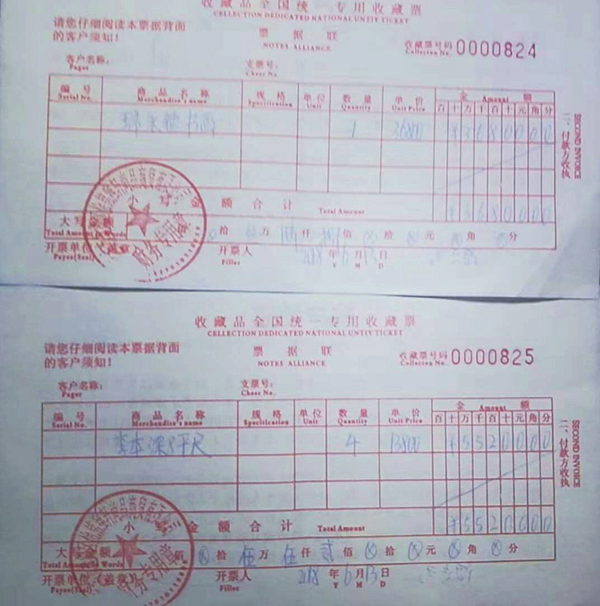 收藏品全国统一专用收藏票
CELLECTION DEDICATED NATIONAL UNTIY TICKET
请您仔细阅读本票据背面
的客户须知!
票据联
NOTES ALLIANCE
收藏票号码
Collecten No. 0000824
客户名称:
Pager
支票号:
Chese No.
编号 商品名称 规格 单位 数量 单价 金额
Serial No. Merchandise's name Specification Unit Quantity Unit Price Amount
百十万千百十元角分
1 36800 ¥3680000
金额合计 Total Amount ¥3680000
大写金额 拾 万 仟 佰 拾 元 角 分
Total Amount in Words
开票单位(盖章) 开票人 2018年6月13日
Payee(Seal) Filler Y M D
二、付款方收执
SECOND INVOICE
财务专用章
收藏品全国统一专用收藏票
CELLECTION DEDICATED NATIONAL UNTIY TICKET
请您仔细阅读本票据背面
的客户须知!
票据联
NOTES ALLIANCE
收藏票号码
Collecten No. 0000825
客户名称:
Pager
支票号:
Chese No.
编号 商品名称 规格 单位 数量 单价 金额
Serial No. Merchandise's name Specification Unit Quantity Unit Price Amount
百十万千百十元角分
4 13800 ¥5520000
金额合计 Total Amount ¥5520000
大写金额 佰⊗拾伍万伍仟贰佰⊗拾⊗元⊗角⊗分
Total Amount in Words
开票单位(盖章) 开票人 2018年6月13日
Payee(Seal) Filler Y M D
二、付款方收执
SECOND INVOICE
财务专用章